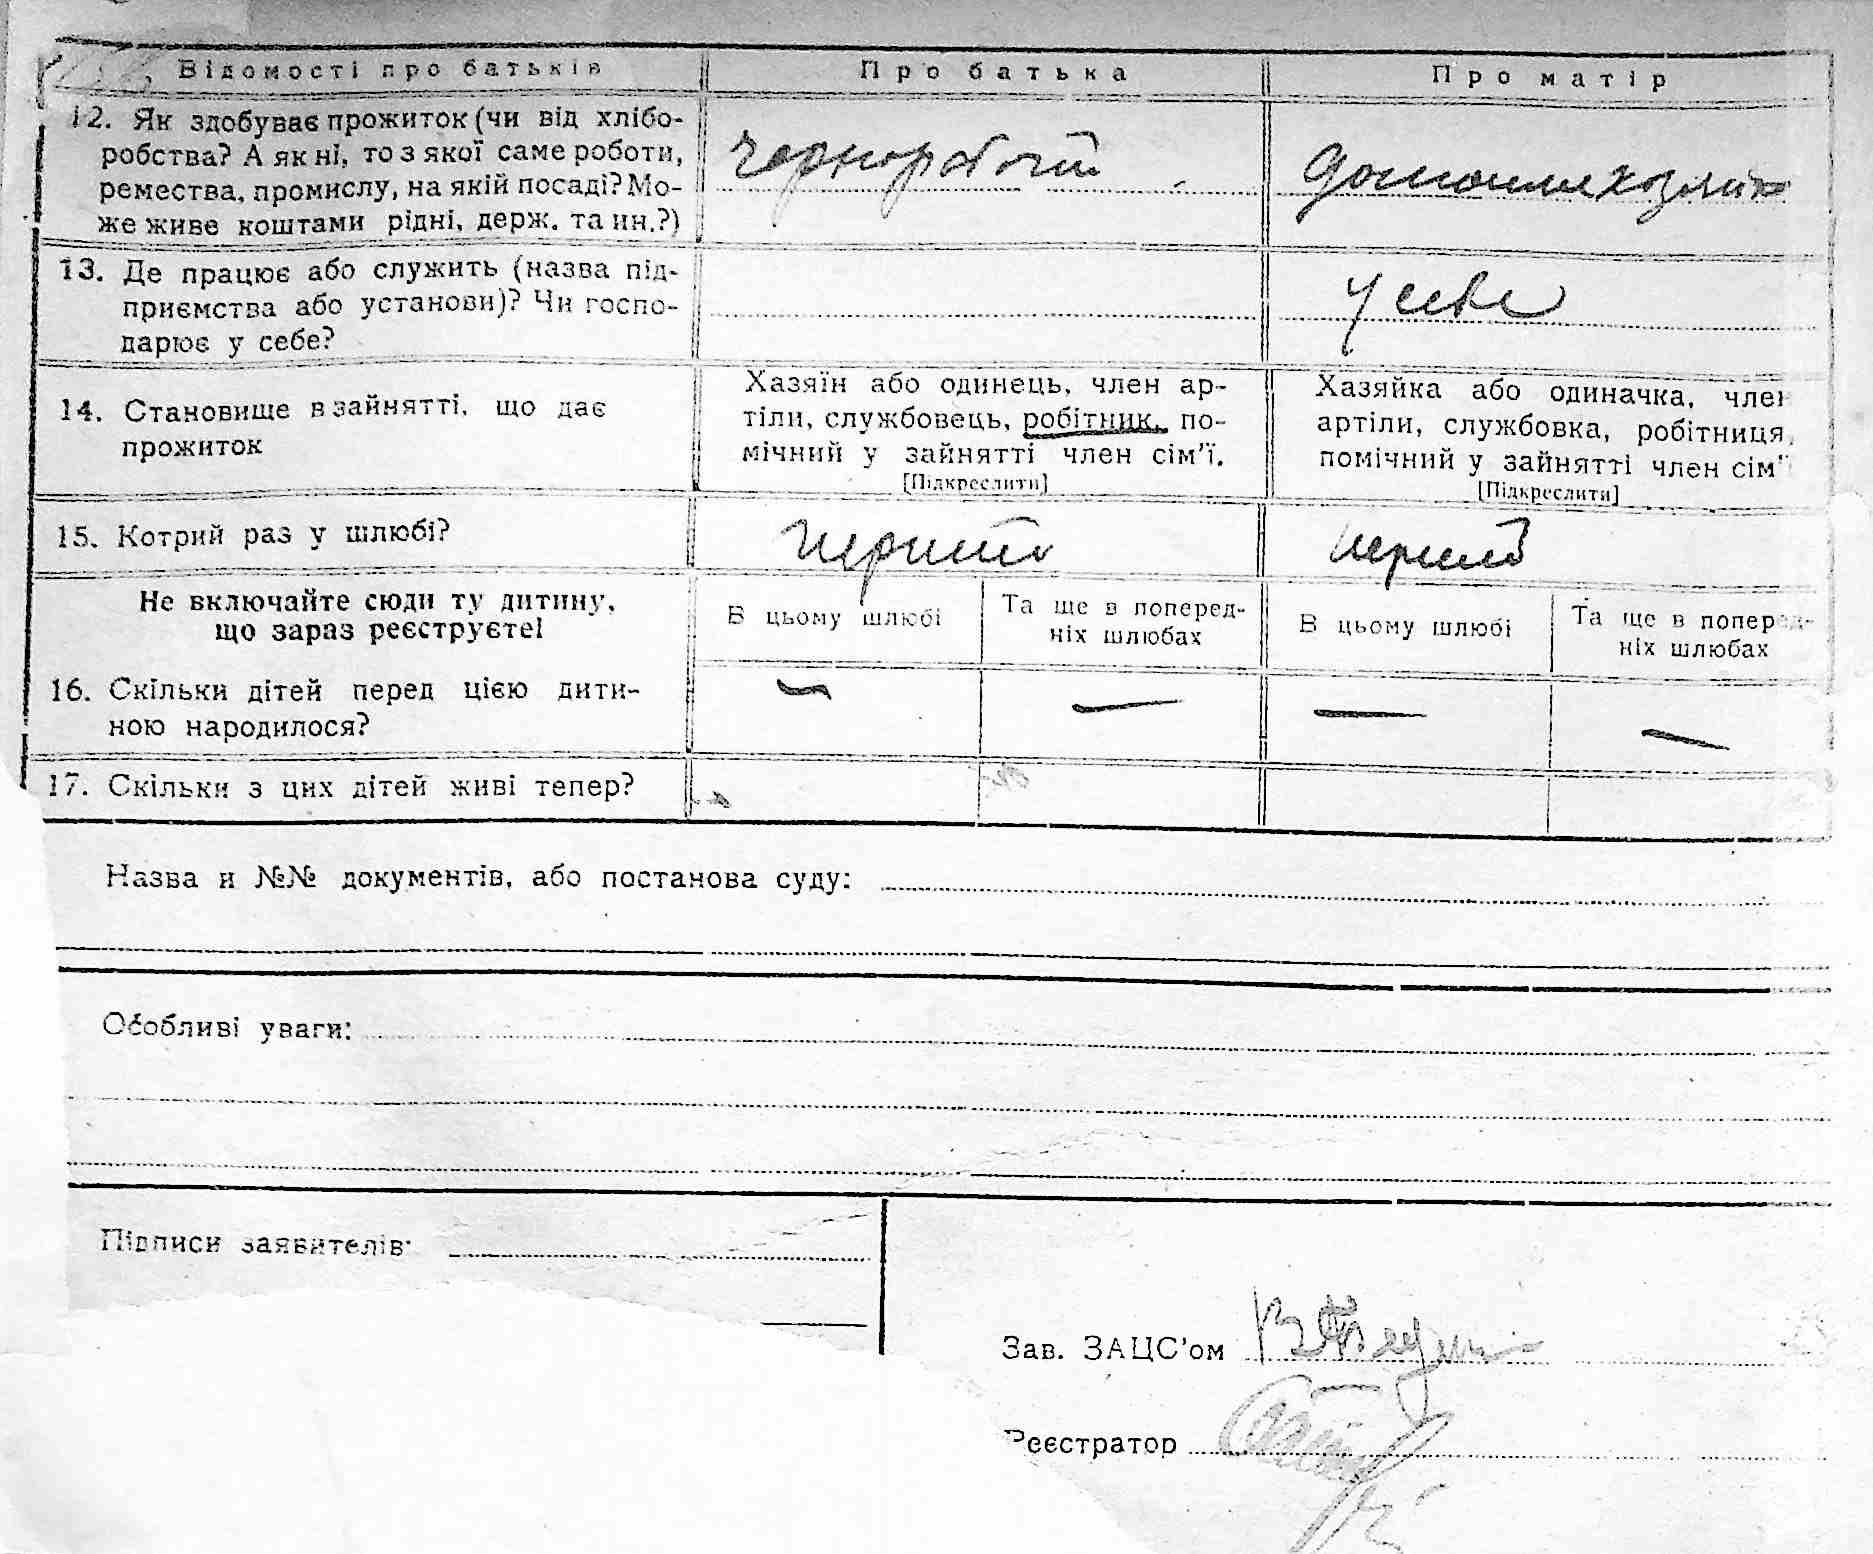 Відомості про батьків Про батька Про матір
12. Як здобуває прожиток (чи від хлібо-
робства? А як ні, то з якої саме роботи,
ремества, промислу, на якій посаді? Мо-
же живе коштами рідні, держ. та ин.?)
13. Де працює або служить (назва під-
приємства або установи)? Чи госпо-
дарює у себе?
у себе
14. Становище в зайнятті, що дає
прожиток
Хазяїн або одинець, член ар-
тіли, службовець, робітник, по-
мічний у зайнятті член сім'ї.
[Підкреслити]
Хазяйка або одиначка, член
артіли, службовка, робітниця,
помічний у зайнятті член сім'ї
[Підкреслити]
15. Котрий раз у шлюбі?
Не включайте сюди ту дитину,
що зараз реєструєте!
В цьому шлюбі
Та ще в поперед-
ніх шлюбах
В цьому шлюбі
Та ще в поперед-
ніх шлюбах
16. Скільки дітей перед цією дити-
ною народилося?
— — — —
17. Скільки з цих дітей живі тепер?
Назва и №№ документів, або постанова суду:
Особливі уваги:
Підписи заявителів:
Зав. ЗАЦС'ом
Реєстратор